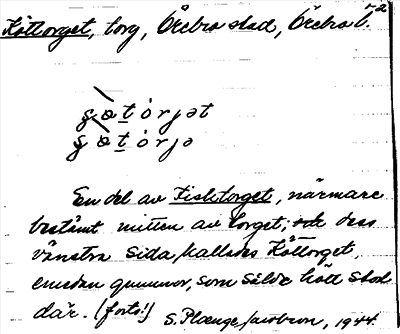 Köttorget, torg, Örebro stad, Örebro l.
En del av Fisktorget, närmare
bestämt mitten av torget, dess
vänstra sida kallades Köttorget,
emedan gummor, som sålde kött stod
där. (forts!) S. Plænge Jacobson, 1944